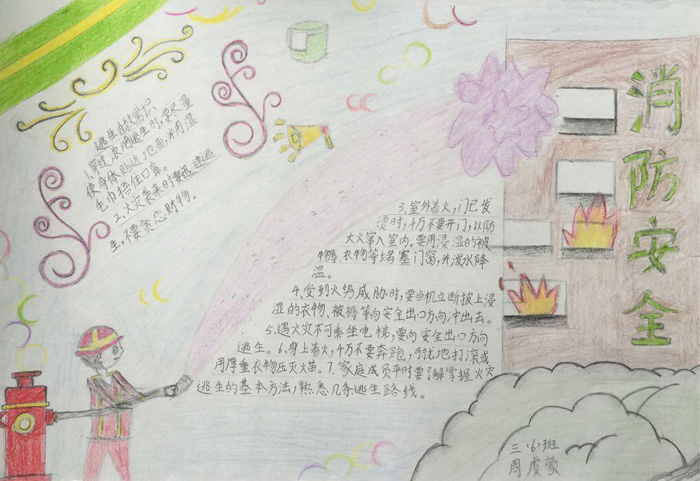 消防安全
逃生自救常识
1.穿过浓烟逃生时,要尽量
使身体贴近地面,并用湿
毛巾捂住口鼻。
2.火灾袭来时要迅速逃
生,不要贪恋财物。
3.室外着火,门已发
烫时,千万不要开门,以防
大火窜入室内。要用浸湿的被
褥、衣物等堵塞门窗,并泼水降
温。
4.受到火势威胁时,要当机立断披上浸
湿的衣物、被褥等向安全出口方向冲出去。
5.遇火灾不可乘坐电梯,要向安全出口方向
逃生。6.身上着火,千万不要奔跑,可就地打滚或
用厚重衣物压灭火苗。7.家庭成员平时要了解掌握火灾
逃生的基本方法,熟悉几条逃生路线。
三·6·班
周虞